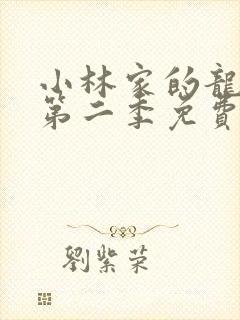 小林家的龍
第二季免費
劉紫荣